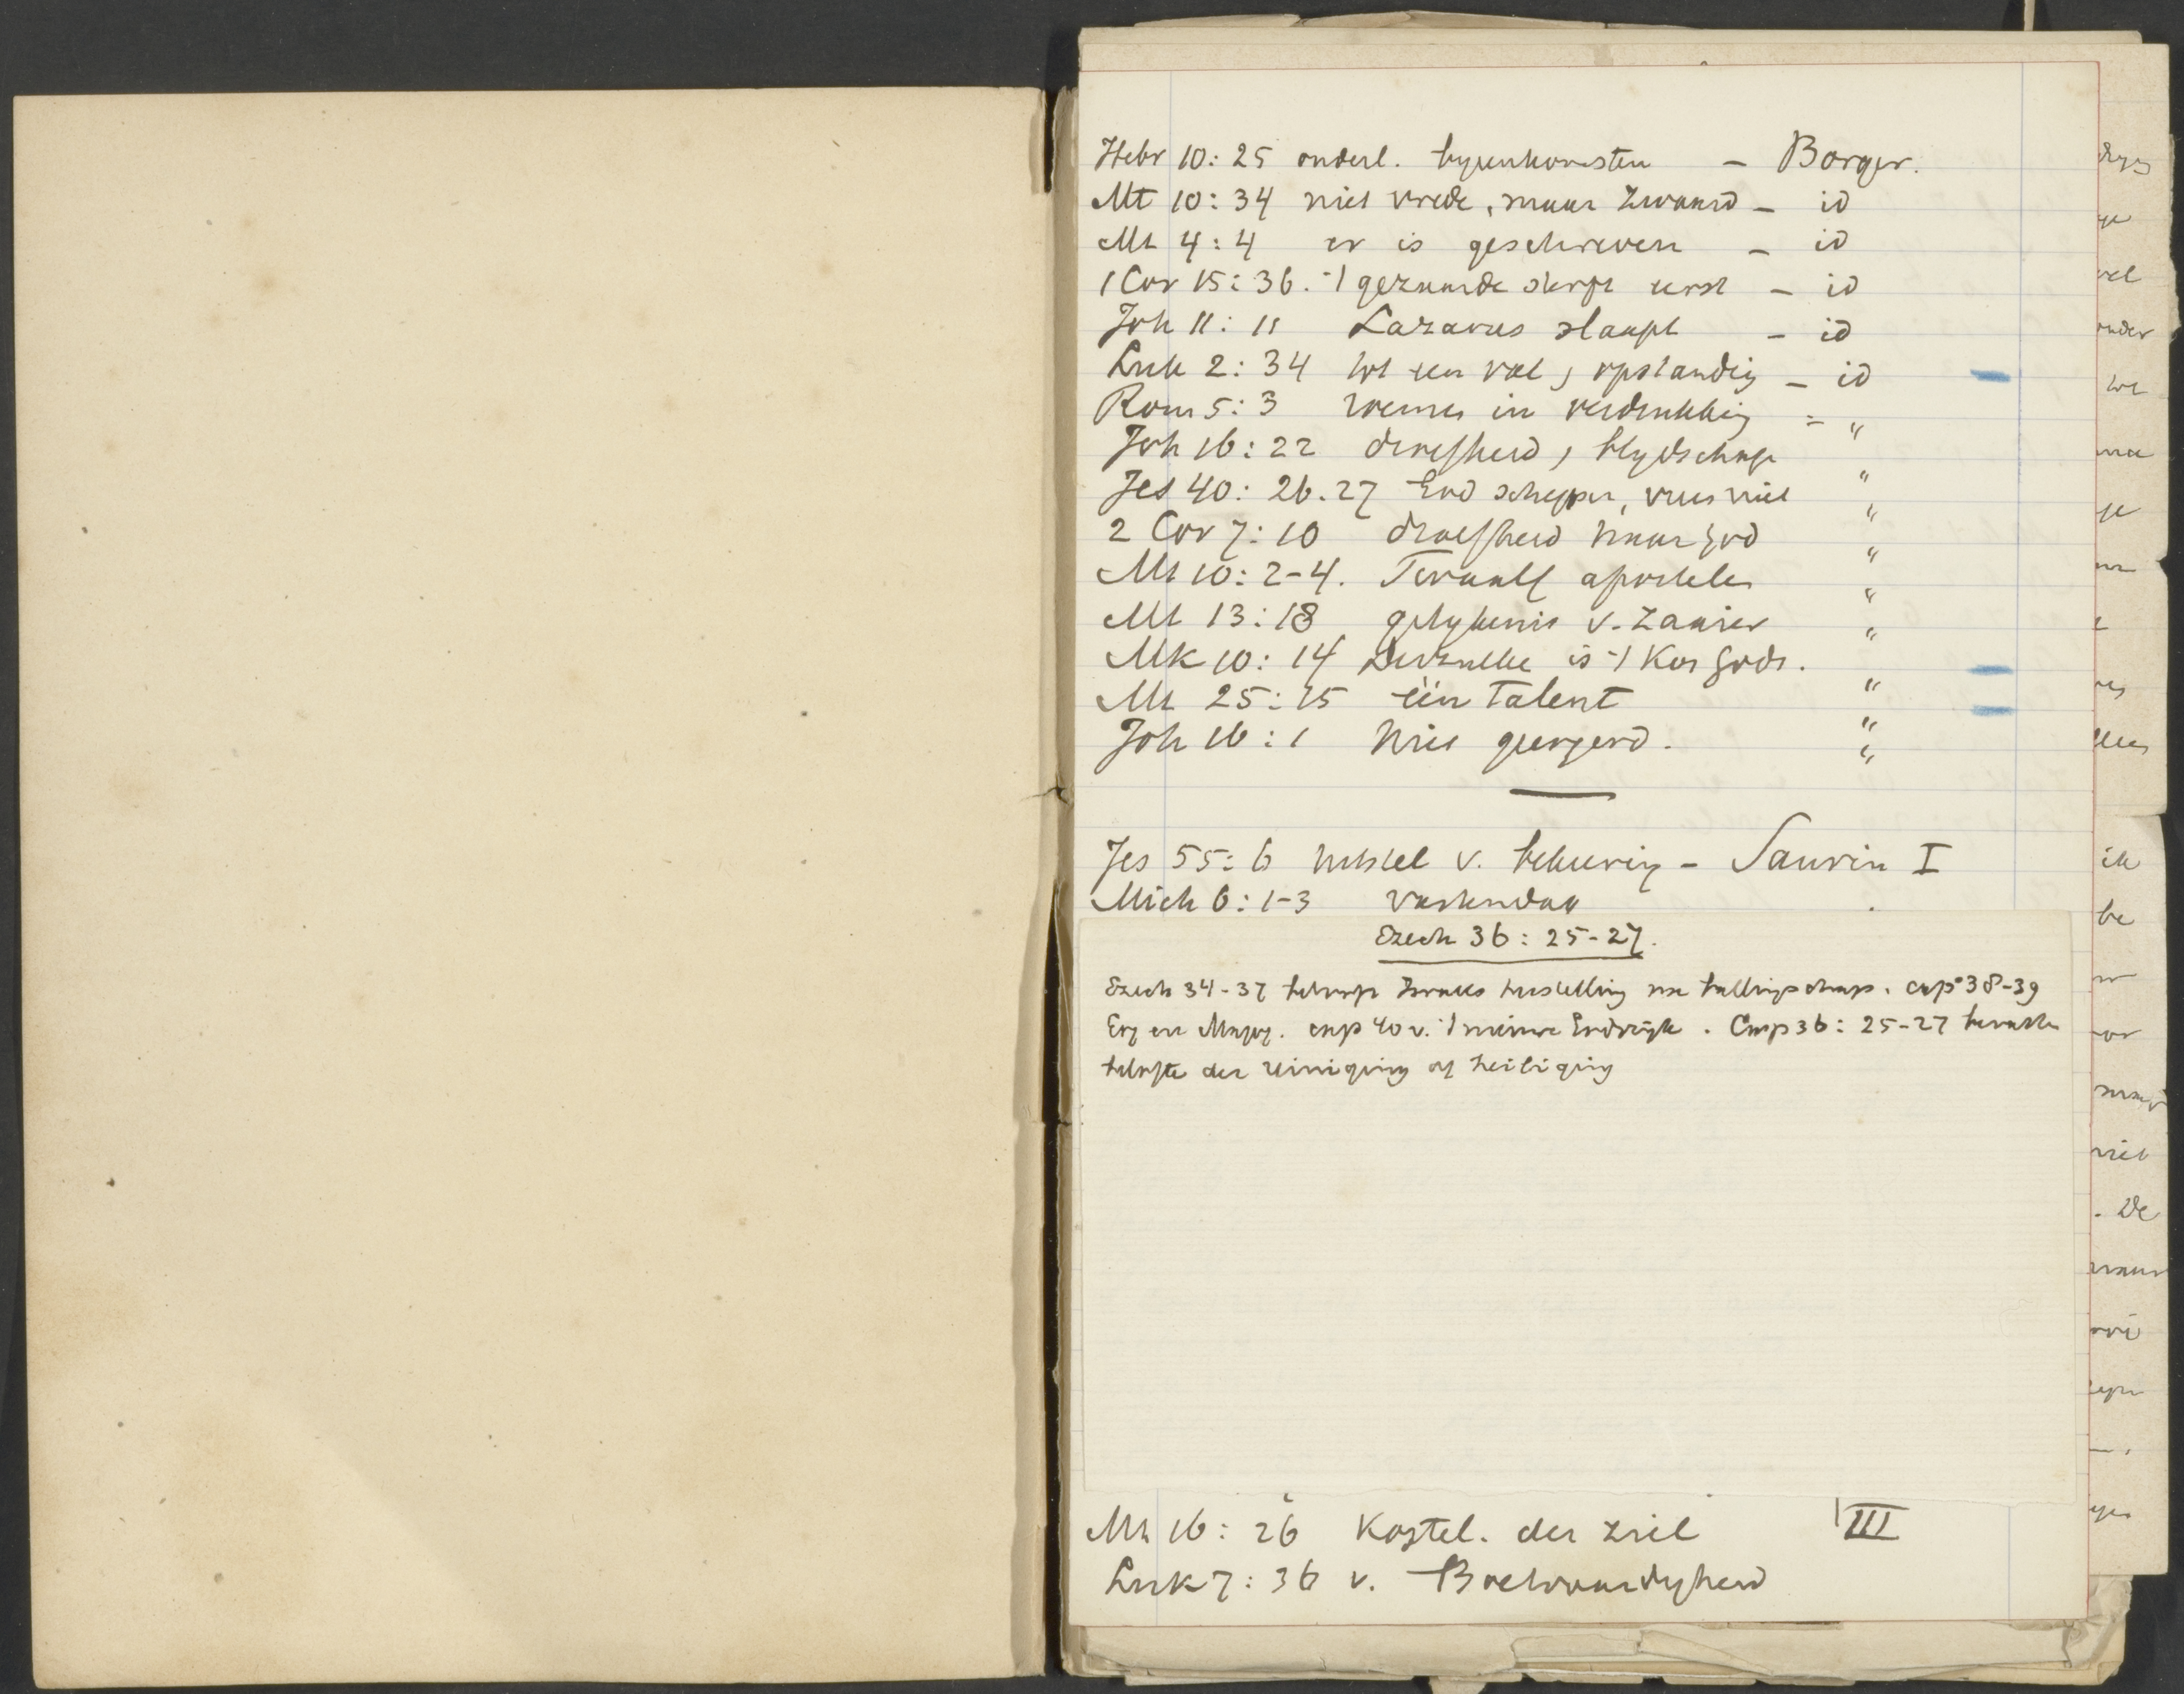 Hebr 10:25 onderl. byeenkomsten - Borger.
Mt 10:34 niet vrede, maar zwaard - id
Mt 4:4 er is geschreven - id
1 Cor 15:36. 't gezaaide sterft eerst - id
Joh 11:11 Lazarus slaapt - id
Luk 2:34 tot een val, opstanding - id
Rom 5:3 roemen in verdrukking - "
Joh 16:22 droefheid, blydschap "
Jes 40:26.27 God schepper, vrees niet "
2 Cor 7:10 droefheid naar God "
Mt 10:2-4. Twaalf apostelen "
Mt 13:18 gelykenis v. zaaier "
Mk 10:14 Derzulke is 't Kon Gods. "
Mt 25:15 één talent "
Joh 16:1 Niet geergerd. "
Jes 55:6 uitstel v. bekeering - Saurin I
Mich 6:1-3 vastendag
Ezech 36:25-27.
Ezech 34-37 belooft Israels herstelling na ballingschap. cap 38-39
Gog en Magog. cap 40 v. 't nieuwe Godsryk. Cap 36:25-27 bevatten
belofte der reiniging of heiliging
Mt 16:26 Kostel. der ziel III
Luk 7:36 v. Boetvaardigheid